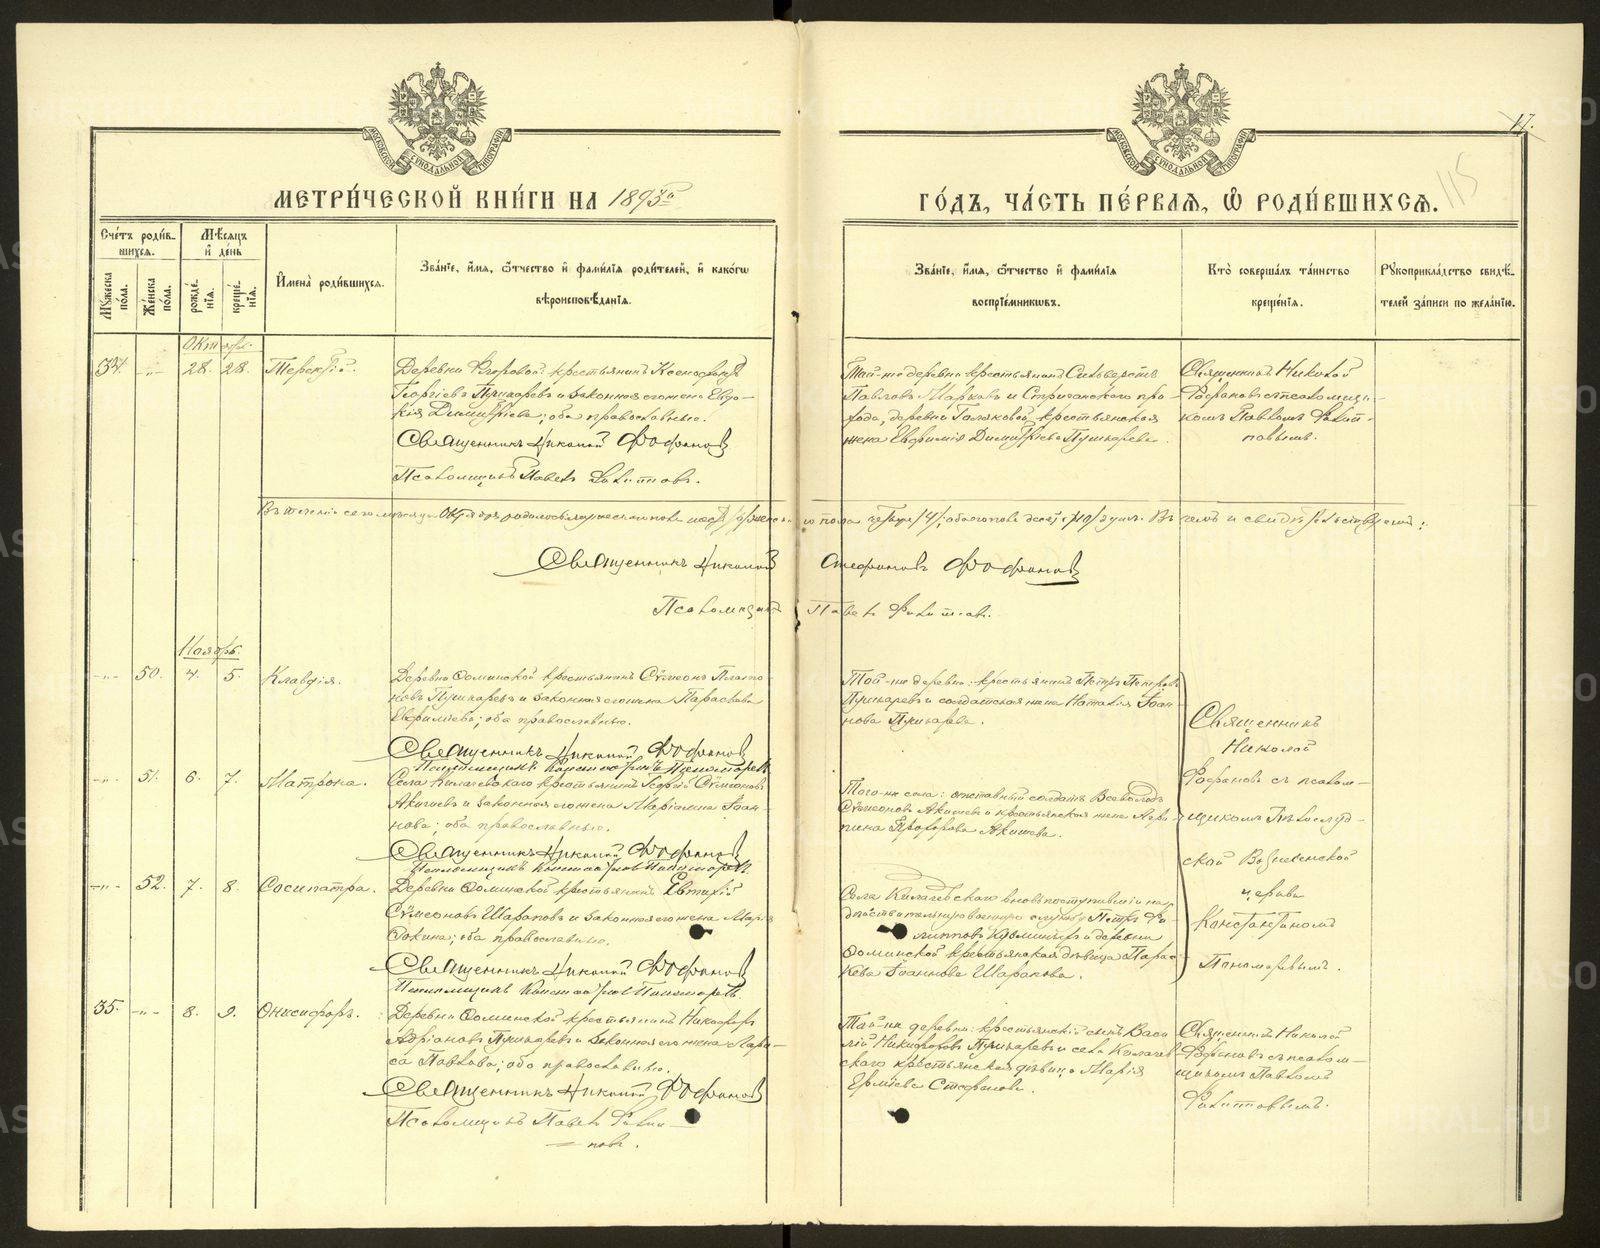 МЕТРИ́ЧЕСКОЙ КНИ́ГИ НА 1893й
ГО́ДЪ, ЧА́СТЬ ПЕ́РВАѦ, Ѡ҆ РОДИ́ВШИХСѦ.
17.
115
МОСКОВСКОЙ СѴНОДАЛЬНОЙ ТИПОГРАФІИ
МОСКОВСКОЙ СѴНОДАЛЬНОЙ ТИПОГРАФІИ
Сче́тъ роди́в-
шихсѧ.
Мꙋ́жеска по́ла.
Же́нска по́ла.
Мѣ́сѧцъ
и҆ де́нь
рожде́-
нїѧ.
креще́-
нїѧ.
И҆мена̀ роди́вшихсѧ.
Зва́нїе, и҆́мѧ, ѻ҆́тчество и҆ фами́лїѧ роди́телей, и҆ како́гѡ
вѣроисповѣ́данїѧ.
Зва́нїе, и҆́мѧ, ѻ҆́тчество и҆ фами́лїѧ
воспрїе́мникѡвъ.
Кто̀ соверша́лъ та́инство
креще́нїѧ.
Рꙋкоприкла́дство свидѣ́-
телей за́писи по жела́нїю.
Октябр.
34. -"- 28. 28. Терентій.
Деревни Егоровой крестьянинъ Ксенофонтъ
Георгіевъ Пушкаревъ и законная его жена Евдо-
кія Димитріева; оба православные.
Священникъ Николай Фофановъ
Псаломщикъ Павелъ
Той-же деревни крестьянинъ Сильверстъ
Павловъ Марковъ и
деревни крестьянская
жена Евфимія Димитріева Пушкарева.
Священникъ Николай
Фофановъ съ псаломщи-
комъ Павломъ
Въ теченіе сего мѣсяца Октября родилось мужескаго пола женска-
го пола четыре /4/; обоего пола десять /10/ душъ. Въ чемъ и свидѣтельствуемъ:
Священникъ Николай Стефановъ Фофановъ
Псаломщикъ Павелъ
Ноябрь.
-"- 50. 4. 5. Клавдія.
Деревни Фоминской крестьянинъ Сѵмеонъ Плато-
новъ Пушкаревъ и законная его жена Параскева
Евфиміева; оба православные.
Священникъ Николай Фофановъ
Псаломщикъ Константинъ Пономаревъ
Той-же деревни: крестьянинъ Петръ Петровъ
Пушкаревъ и солдатская жена Наталія Іоан-
нова Пушкарева.
Священникъ
Николай
Фофановъ съ псалом-
щикомъ
ской Вознесенской
церкви
Константиномъ
Пономаревымъ.
-"- 51. 6. 7. Матрона.
Села Килачевскаго крестьянинъ Георгій Сѵмеоновъ
Акишевъ и законная его жена Маріамна Іоан-
нова; оба православные.
Священникъ Николай Фофановъ
Псаломщикъ Константинъ Пономаревъ
Того-же села: отставный солдатъ Всеволодъ
Сѵмеоновъ Акишевъ и крестьянская жена Агри-
пина Прохорова Акишева.
-"- 52. 7. 8. Сосипатра.
Деревни Фоминской крестьянинъ Евтихій
Сѵмеоновъ Шараповъ и законная его жена Марія
Фокина; оба православные.
Священникъ Николай Фофановъ
Псаломщикъ Константинъ Пономаревъ
Села Килачевскаго вновь поступившій на
дѣйствительную военную службу Петръ Фи-
липповъ Кузминыхъ и деревни
Фоминской крестьянская дѣвица Парас-
кева Іоаннова Шарапова.
35. -"- 8. 9. Онисифоръ.
Деревни Фоминской крестьянинъ Никифоръ
Адріановъ Пушкаревъ и законная его жена Лари-
са Павлова; оба православные.
Священникъ Николай Фофановъ
Псаломщикъ Павелъ
Той-же деревни: крестьянскій сынъ Васи-
лій Никифоровъ Пушкаревъ и села Килачев-
скаго крестьянская дѣвица Марія
Ермиева Стефанова.
Священникъ Николай
Фофановъ съ псалом-
щикомъ Павломъ